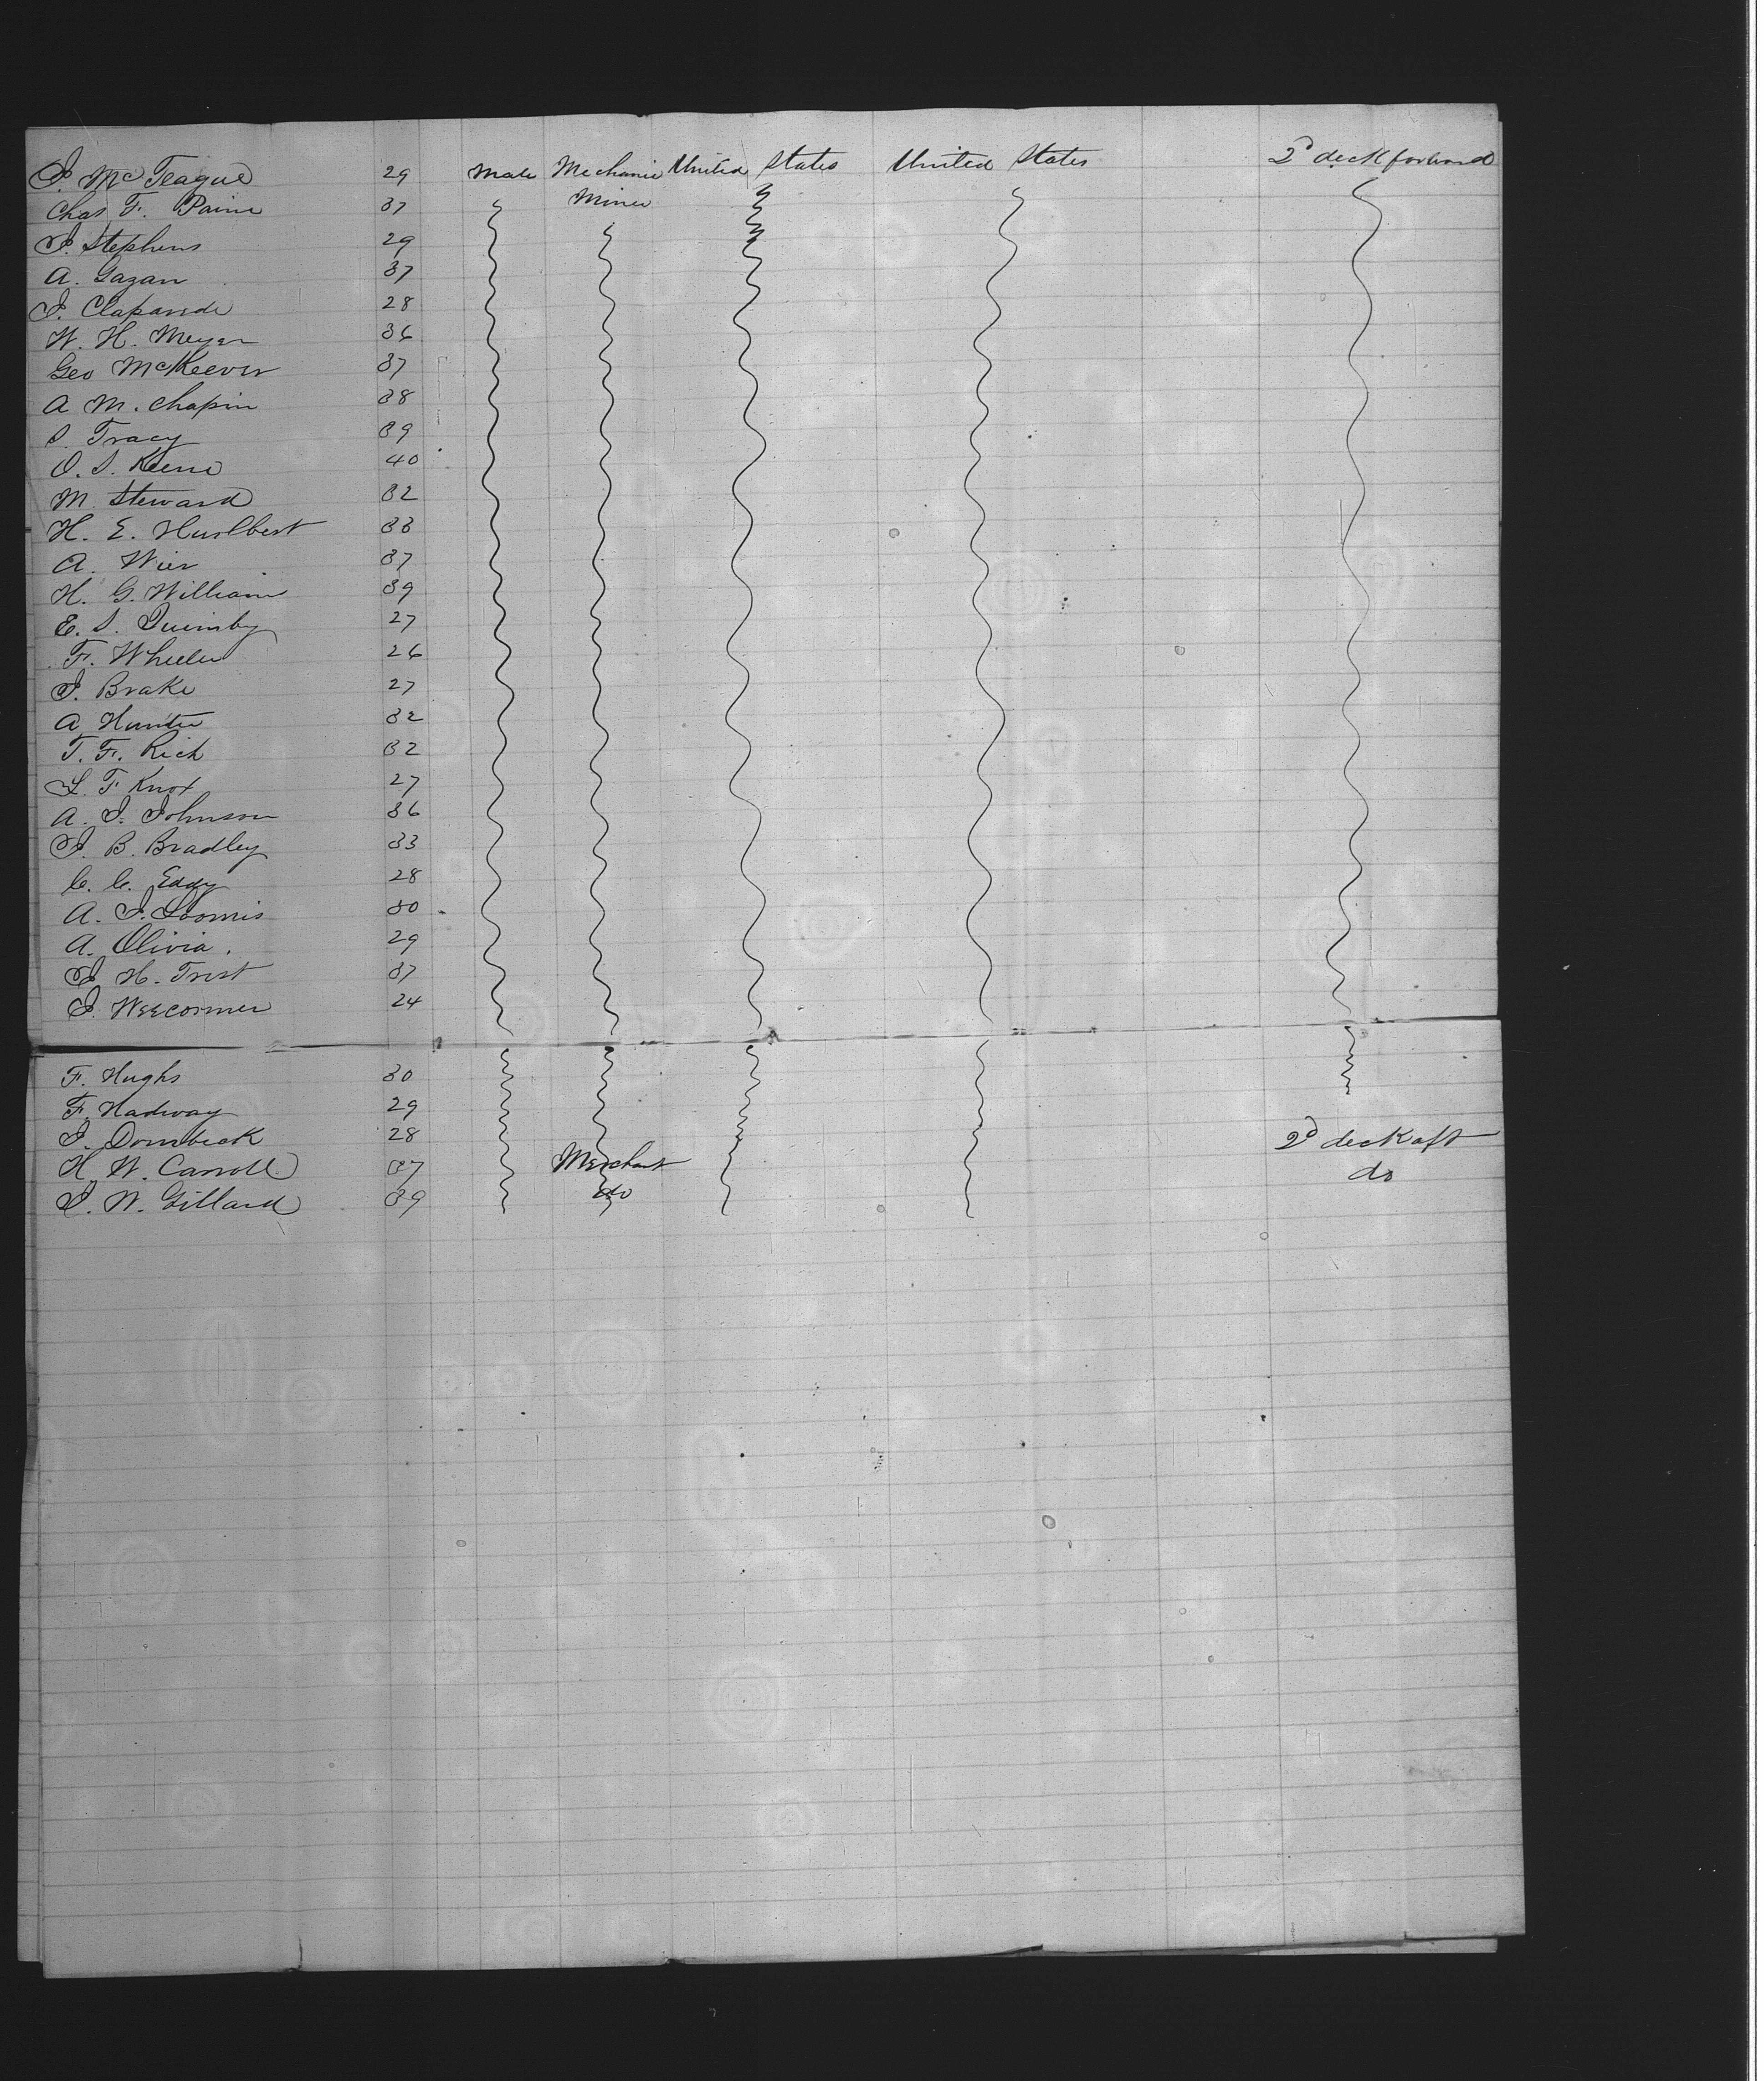 J. McTeague 29 Male Mechanic United States United States 2d deck forward
Chas F. Paine 37 Miner
J. Stephens 29
A. Gazan 37
J. Claparede 28
W. H. Meyer 36
Geo McKeever 37
A M. Chapin 38
S. Tracy 39
O. S. Keene 40
M. Steward 32
H. E. Hurlbert 33
A. Wier 37
H. G. William 39
E. S. Quimby 27
F. Wheeler 26
J. Brake 27
A Hunter 32
T. F. Rich 32
L. F Knox 27
A. J. Johnson 36
J. B. Bradley 33
C. C. Eddy 28
A. J. Loomis 30
A. Olivia 29
J H. Trist 37
J. 24
F. Hughs 30
F. Hadway 29
J. Dornbeck 28 2d deck aft
H. W. Carroll 37 Merchant do
J. W. Gillard 39 do